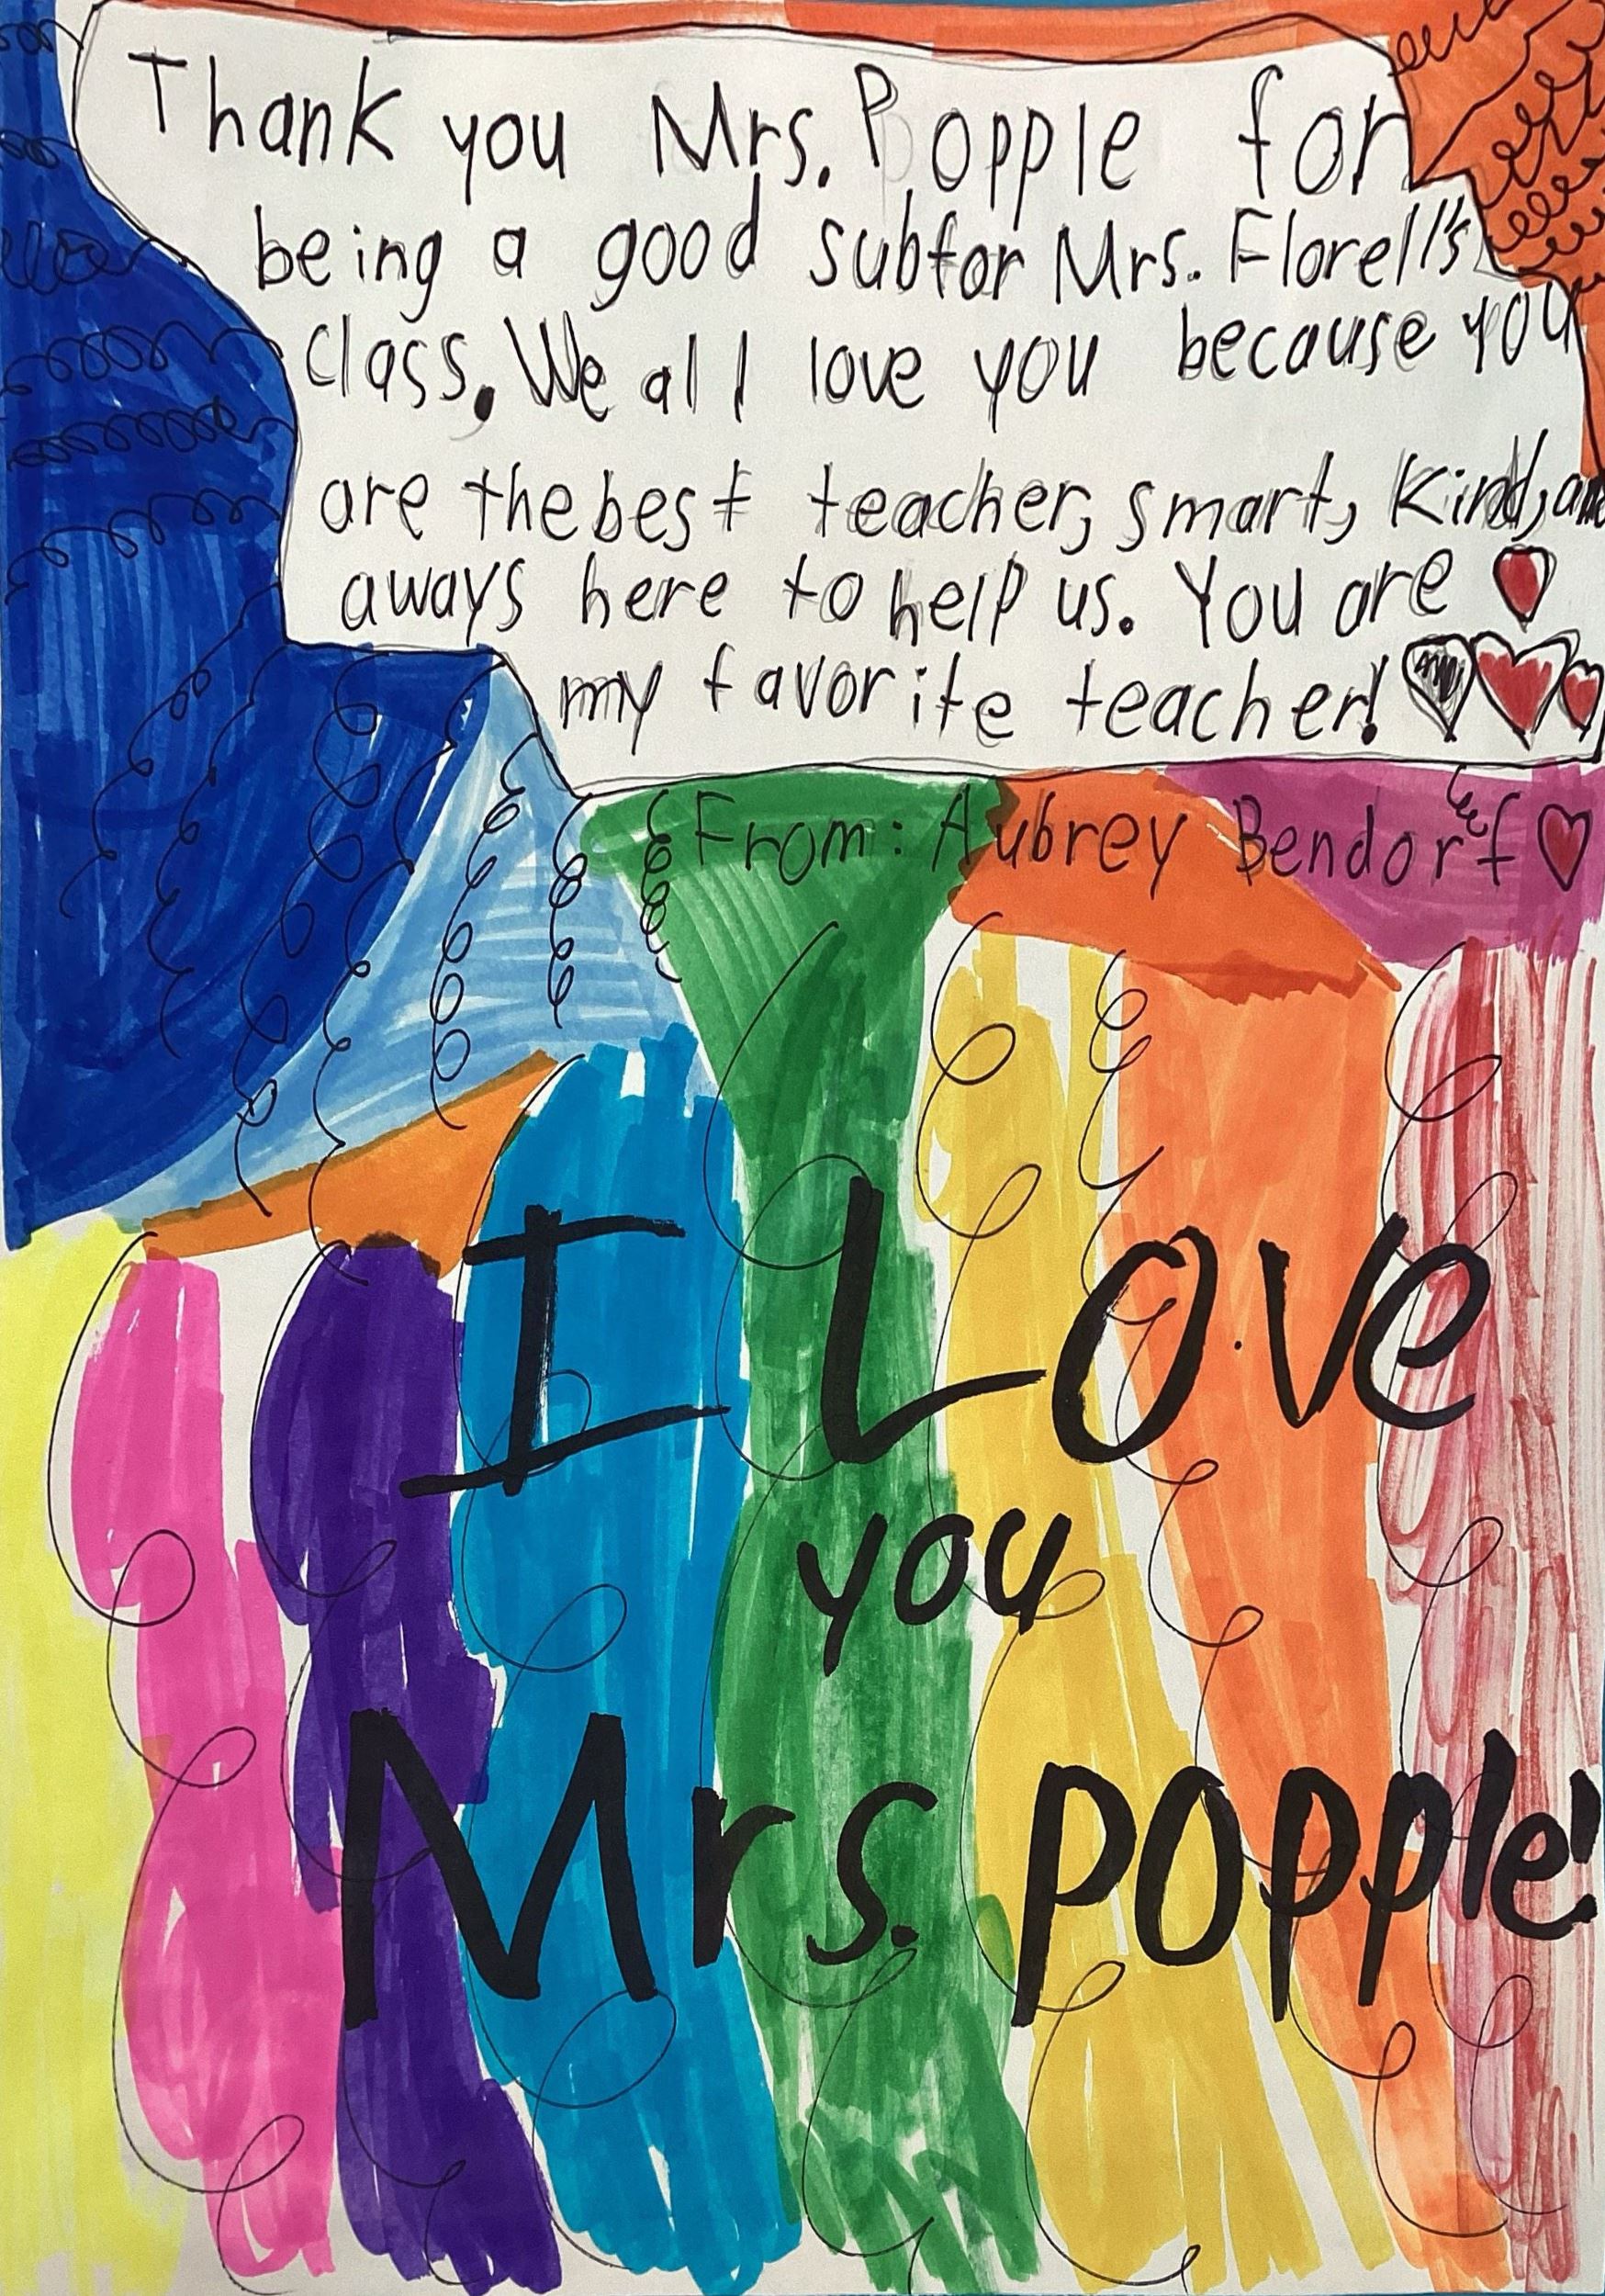 Thank you Mrs. Popple for
being a good sub for Mrs. Florell's
class. We all love you because you
are the best teacher, smart, kind, and
aways here to help us. You are
my favorite teacher!
From: Aubrey Bendorf
I Love
you
Mrs. Popple!